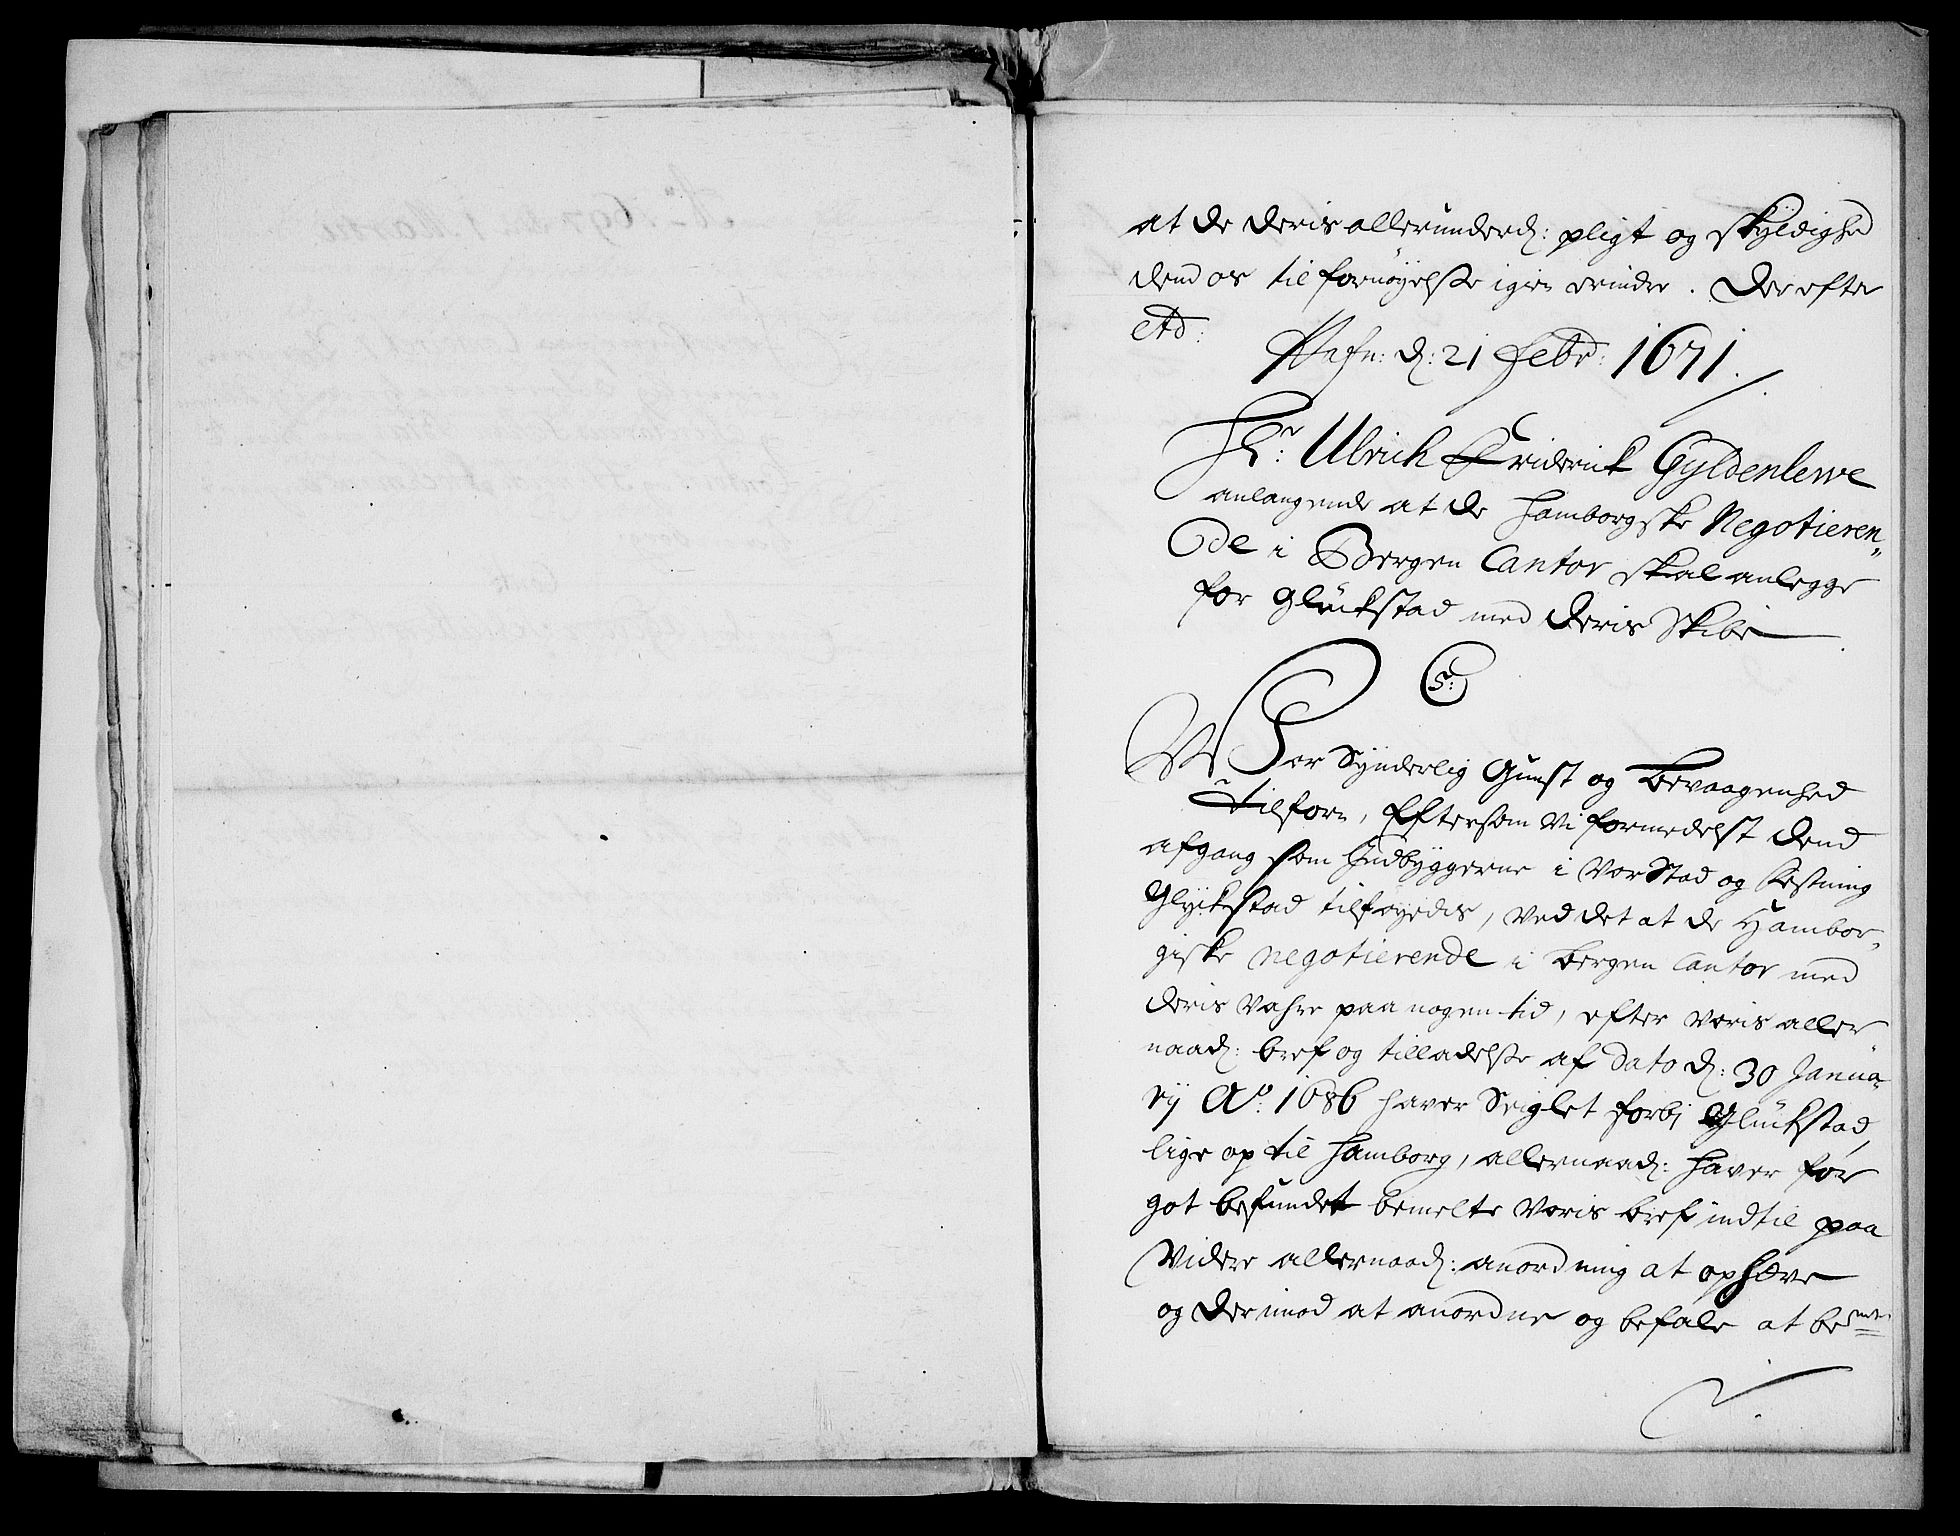 at de deris allerunderd: pligt og skyldighed
dend os til fornøyelse igien erindre. Der efter
etd:
Hafn: d: 21 Febr: 1691.
Hr: Ulrich Friderick Gyldenlewe
anlangende at de Hamborgske Negotieren„
de i Bergen Cantor skal anlegge
for Glückstad med deris Skibe
5:
Vor Synderlig Gunst og bevaagenhed
tilforn, Eftersom Vi formedelst dend
afgang som Indbyggerne i Vor Stad og Festning
Glyckstad tilføyedis, ved det at de Hambor„
giske negotierende i bergen Cantor med
deris Vahre paa nogen tid, efter Voris aller„
naad: bref og tilladelse af dato d: 30 Janua„
rij Ao: 1686 haver Seiglet forbj Glückstad,
lige op til Hamborg, allernaad: haver for
got befundet bemelte Voris bref indtil paa
Videre allernaad: anordning at ophæve
og der imod at anordne og befale at bemte